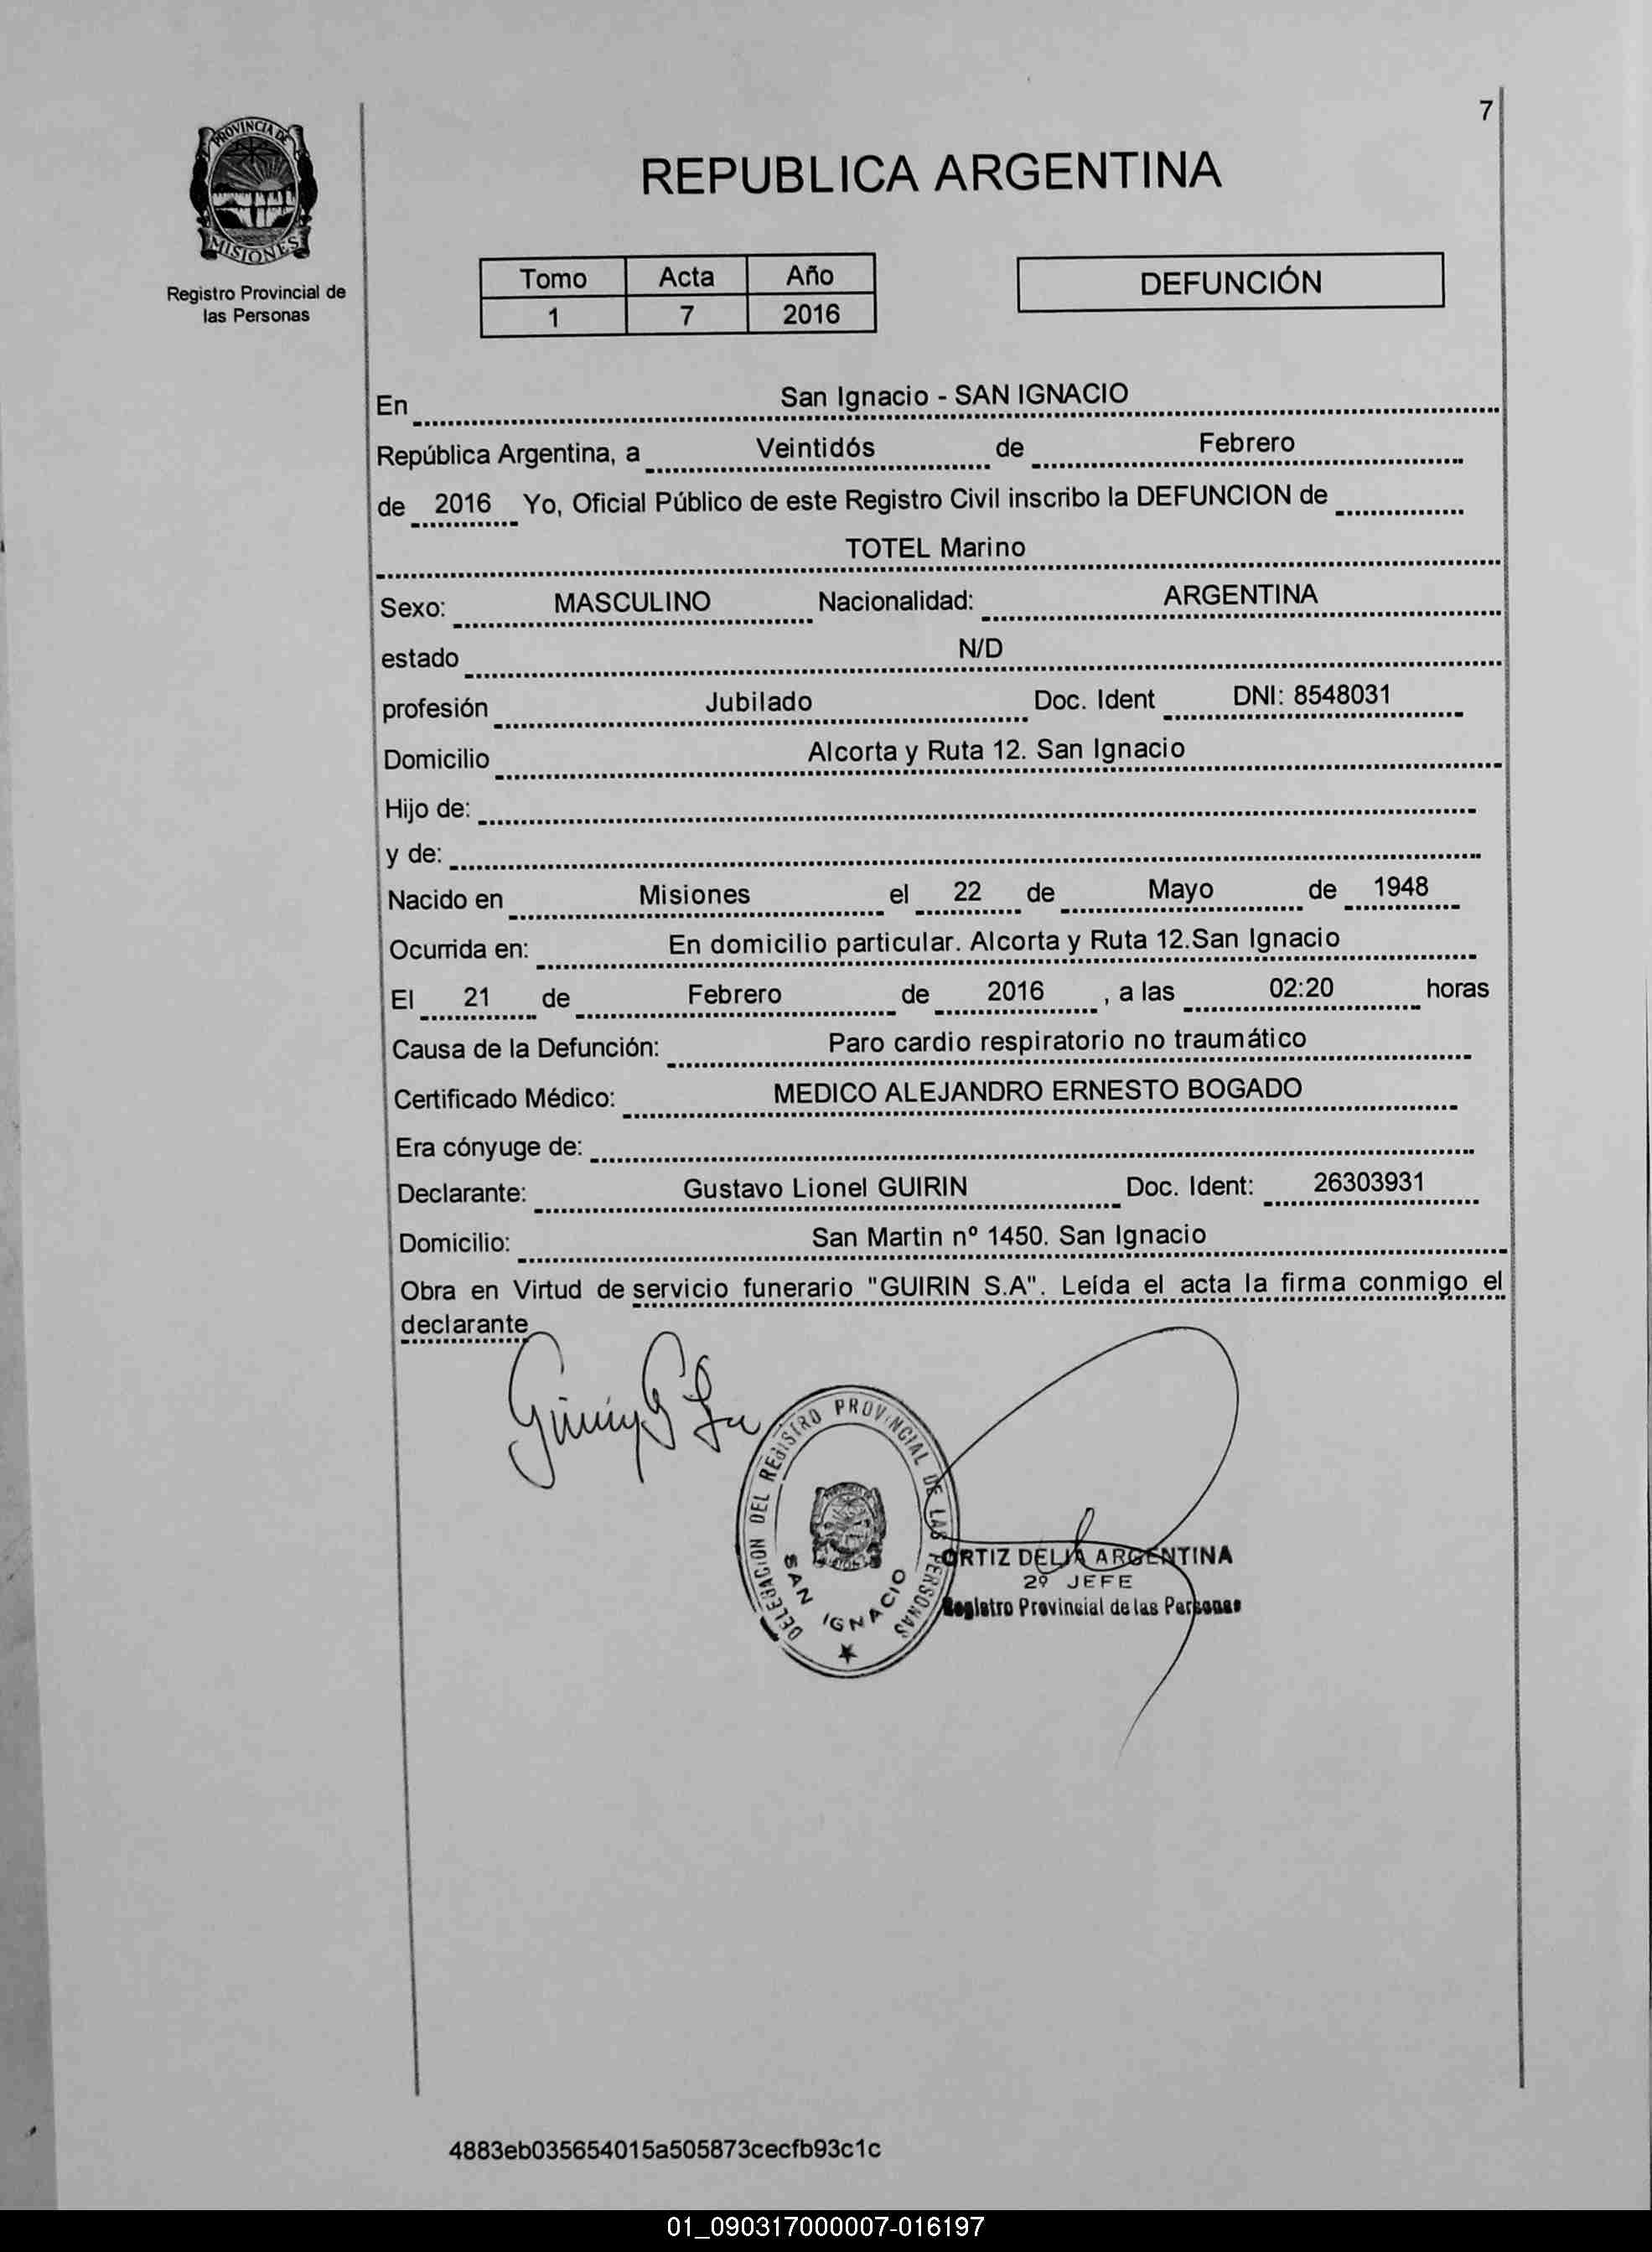 7
PROVINCIA DE
MISIONES
Registro Provincial de
las Personas
REPUBLICA ARGENTINA
Tomo Acta Año
1 7 2016
DEFUNCIÓN
En San Ignacio - SAN IGNACIO
República Argentina, a Veintidós de Febrero
de 2016 Yo, Oficial Público de este Registro Civil inscribo la DEFUNCION de
TOTEL Marino
Sexo: MASCULINO Nacionalidad: ARGENTINA
estado N/D
profesión Jubilado Doc. Ident DNI: 8548031
Domicilio Alcorta y Ruta 12. San Ignacio
Hijo de:
y de:
Nacido en Misiones el 22 de Mayo de 1948
Ocurrida en: En domicilio particular. Alcorta y Ruta 12.San Ignacio
El 21 de Febrero de 2016 , a las 02:20 horas
Causa de la Defunción: Paro cardio respiratorio no traumático
Certificado Médico: MEDICO ALEJANDRO ERNESTO BOGADO
Era cónyuge de:
Declarante: Gustavo Lionel GUIRIN Doc. Ident: 26303931
Domicilio: San Martin nº 1450. San Ignacio
Obra en Virtud de servicio funerario "GUIRIN S.A". Leída el acta la firma conmigo el
declarante
DELEGACION DEL REGISTRO PROVINCIAL DE LAS PERSONAS
SAN IGNACIO
ORTIZ DELIA ARGENTINA
2º JEFE
Registro Provincial de las Personas
4883eb035654015a505873cecfb93c1c
01_090317000007-016197